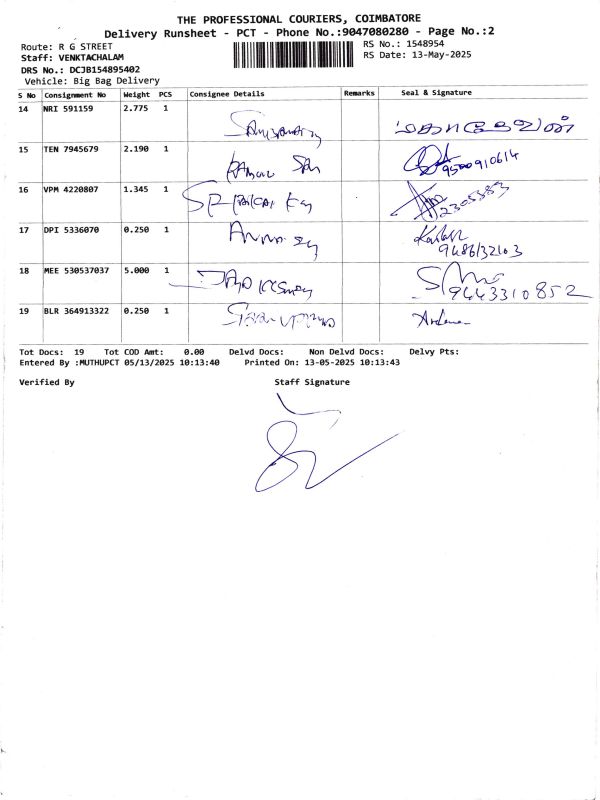 THE PROFESSIONAL COURIERS, COIMBATORE
Delivery Runsheet - PCT - Phone No.:9047080280 - Page No.:2
Route: R G STREET
RS No.: 1548954
Staff: VENKTACHALAM
RS Date: 13-May-2025
DRS No.: DCJB154895402
Vehicle: Big Bag Delivery
S No Consignment No Weight PCS Consignee Details Remarks Seal & Signature
14 NRI 591159 2.775 1
15 TEN 7945679 2.190 1 9500910614
16 VPM 4220807 1.345 1 2305383
17 DPI 5336070 0.250 1
9486132103
18 MEE 530537037 5.000 1
9443310852
19 BLR 364913322 0.250 1
Tot Docs: 19 Tot COD Amt: 0.00 Delvd Docs: Non Delvd Docs: Delvy Pts:
Entered By :MUTHUPCT 05/13/2025 10:13:40 Printed On: 13-05-2025 10:13:43
Verified By Staff Signature